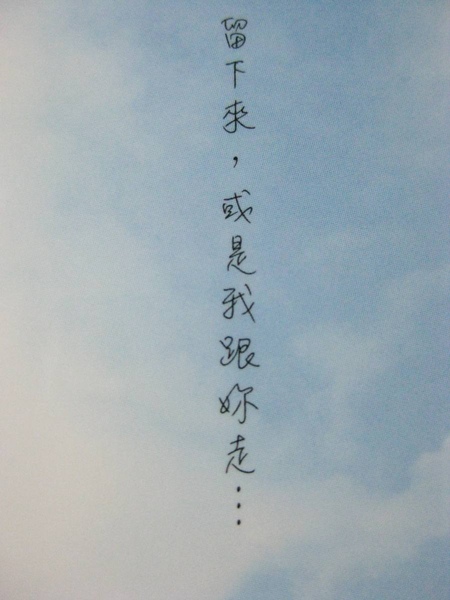 留下來，或是我跟妳走⋯